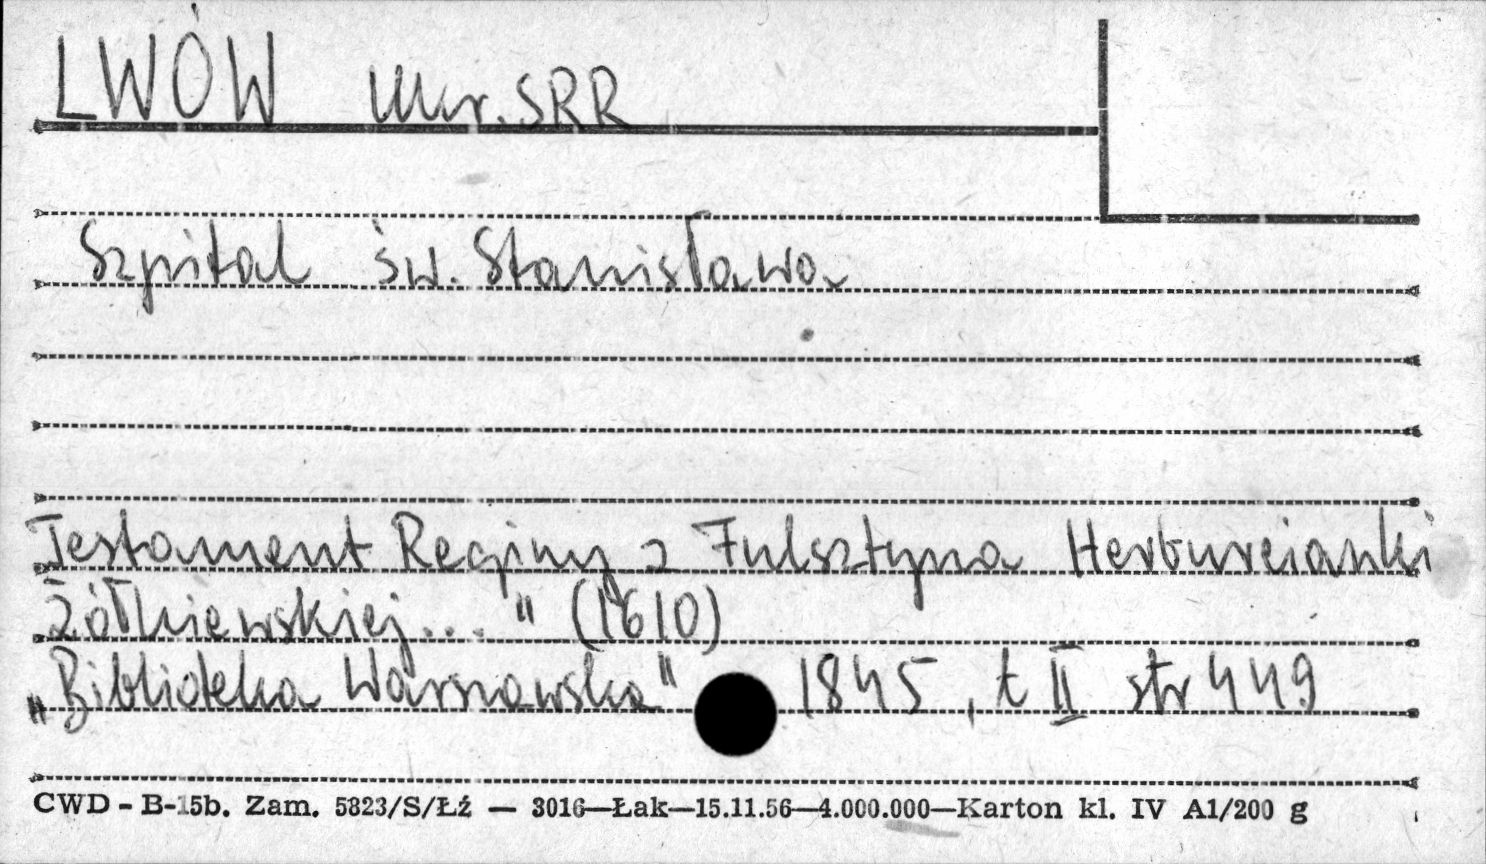 LWÓW Ukr. SRR
Szpital św. Stanisława
Testament Reginy z Fulsztyna Herburcianki
Żółkiewskiej... " (1610)
„Biblioteka Warszawska" 1845, t II str 449
CWD - B-15b. Zam. 5823/S/Łź — 3016—Łak—15.11.56—4.000.000—Karton kl. IV A1/200 g